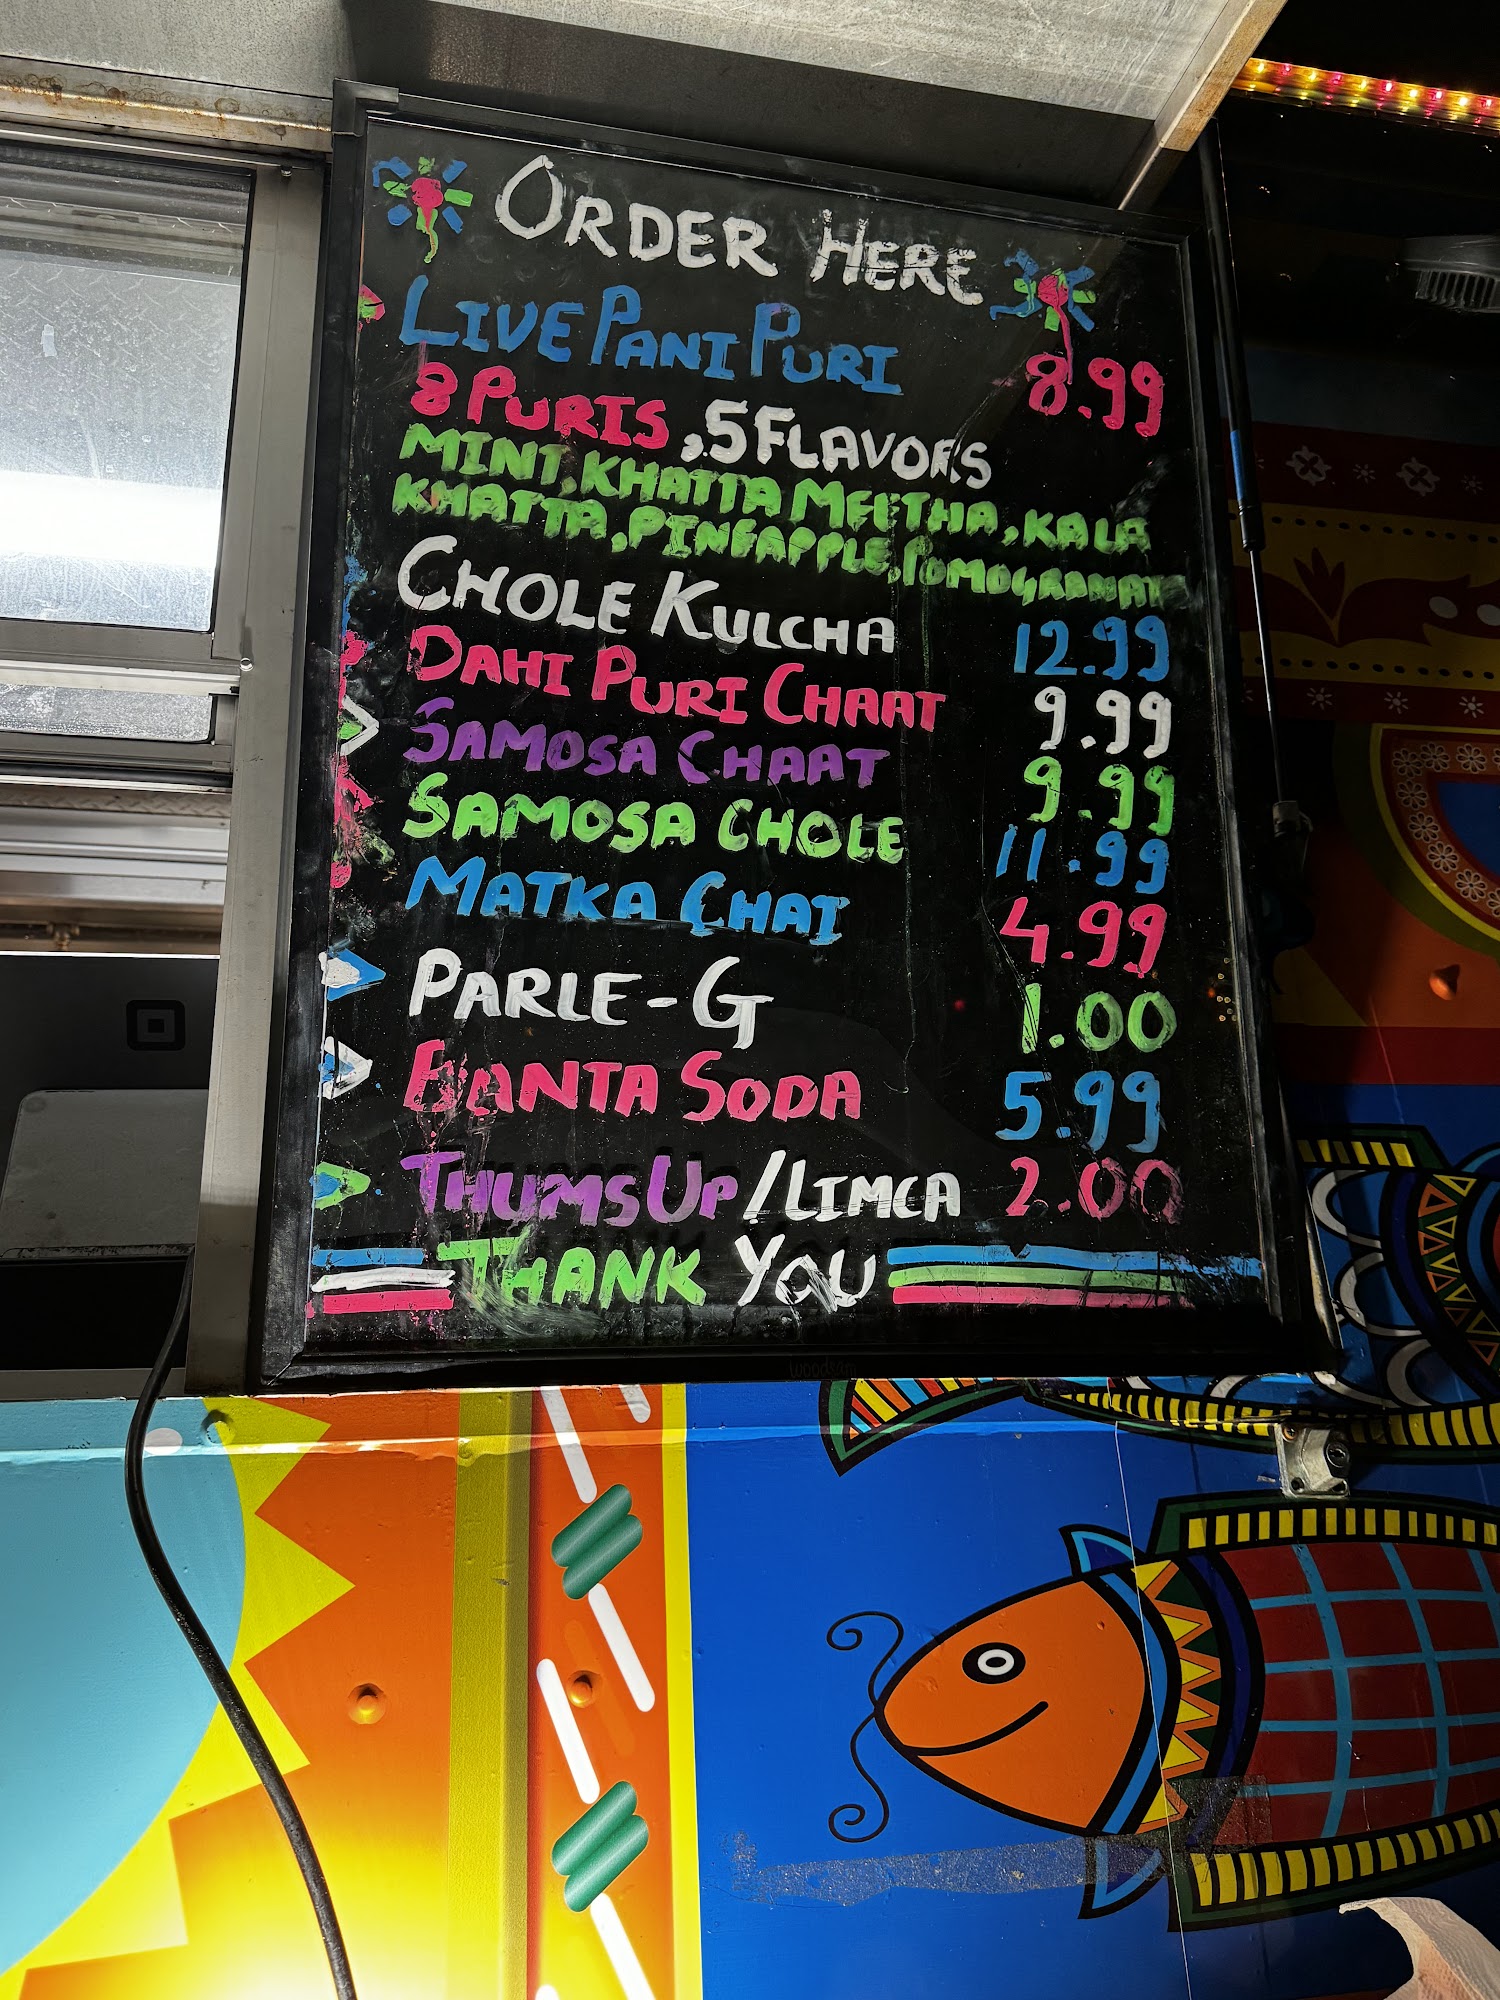 ORDER HERE
LIVE PANI PURI 8.99
8 PURIS, 5 FLAVORS
MINT, KHATTA MEETHA, KALA
KHATTA, PINEAPPLE, POMOGRANAT
CHOLE KULCHA 12.99
DAHI PURI CHAAT 9.99
SAMOSA CHAAT 9.99
SAMOSA CHOLE 11.99
MATKA CHAI 4.99
PARLE-G 1.00
BANTA SODA 5.99
THUMS UP/LIMCA 2.00
THANK YOU